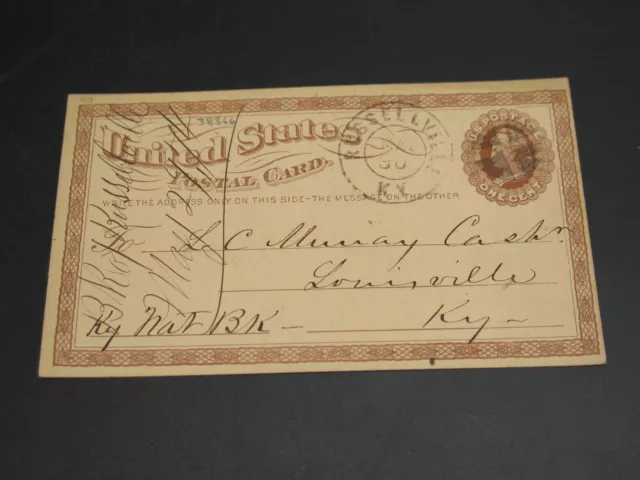 38866
United States
POSTAL CARD.
WRITE THE ADDRESS ONLY ON THIS SIDE-THE MESSAGE ON THE OTHER
RUSSELLVILLE
30
KY.
U.S. POSTAGE
ONE CENT
L C Murray Cashr
Louisville
Ky Nat Bk - Ky -
Bk of Russellville